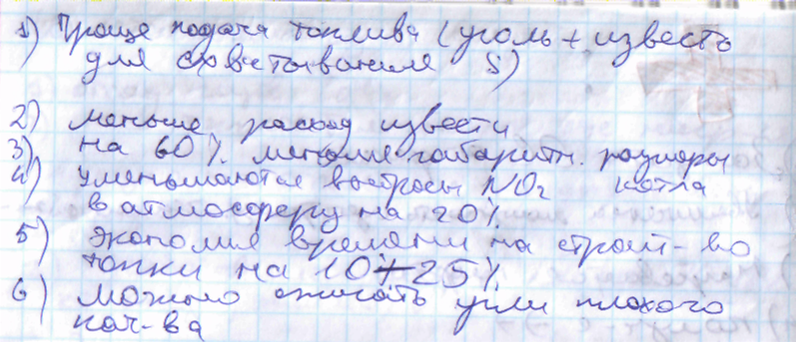 1) Проще подача топлива (уголь + известь
для связывания S)
2) меньше расход извести
3) на 60% меньше габаритн. размеры
4) уменьшаются выбросы NO₂ котла
в атмосферу на 20%
5) экономия времени на строит-во
топки на 10÷25%
6) можно сжигать угли плохого
кач-ва